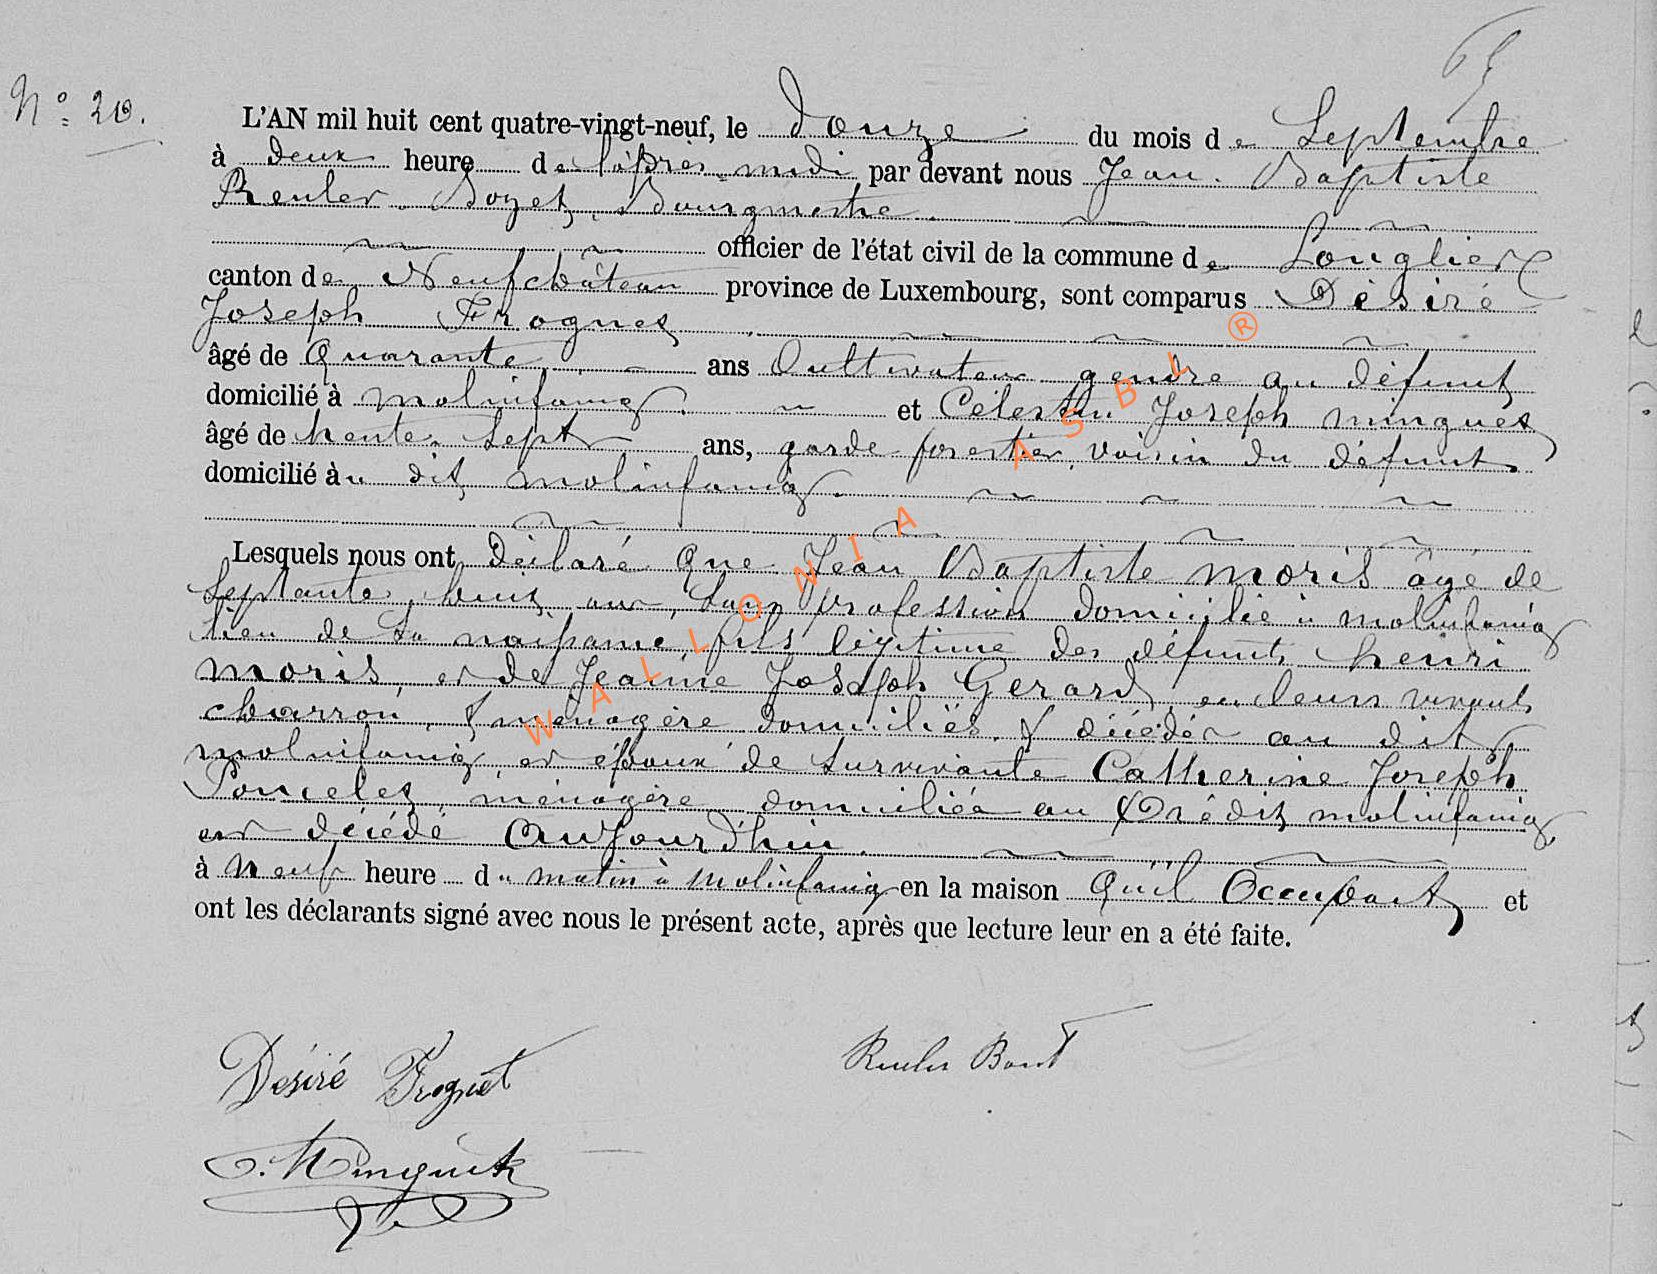 65
N° 20.
L'AN mil huit cent quatre-vingt-neuf, le douze du mois de Septembre
à deux heure de l'après-midi par devant nous Jean-Baptiste
Reuler-Bozet, Bourgmestre
officier de l'état civil de la commune de Longlier
canton de Neufchâteau province de Luxembourg, sont comparus Désiré
Joseph Frognet
âgé de quarante ans Cultivateur gendre au défunt
domicilié à molinfaing et Célestin Joseph minguet
âgé de trente-sept ans, garde forestier, voisin du défunt
domicilié au dit molinfaing.
Lesquels nous ont déclaré que Jean Baptiste moris âgé de
septante huit ans, sans profession domicilié à molinfaing
lieu de sa naissance, fils légitime des défunts henri
moris, et de Jeanne Joseph Gerard, en leurs vivants
charron, & ménagère domiciliés & décédés au dit
molinfaing, et époux de survivante Catherine Joseph
Poncelet, ménagère domiciliée au prédit molinfaing
est décédé aujourd'hui.
à neuf heure du matin à Molinfaing en la maison qu'il occupait et
ont les déclarants signé avec nous le présent acte, après que lecture leur en a été faite.
Désiré Frognet
Reuler
Minguet
WALLONIA ASBL ®